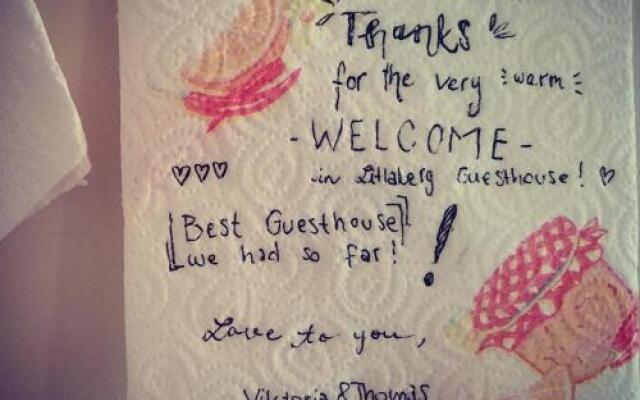 Thanks
for the very warm
- WELCOME -
♡♡♡ in Litlaberg Guesthouse! ♡
[Best Guesthouse]
we had so far! !
Love to you,
Viktoria & Thomas